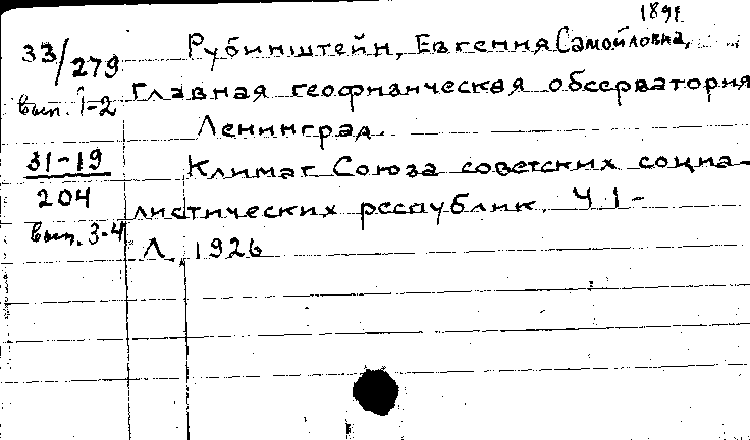 1891
33/279
Рубинштейн, Евгения Самойловна,
Главная геофизическая обсерватория
вып. 1-2
Ленинград. —
31-19
204
Климат Союза советских социа-
листических республик. Ч 1-
вып. 3-4
Л, 1926